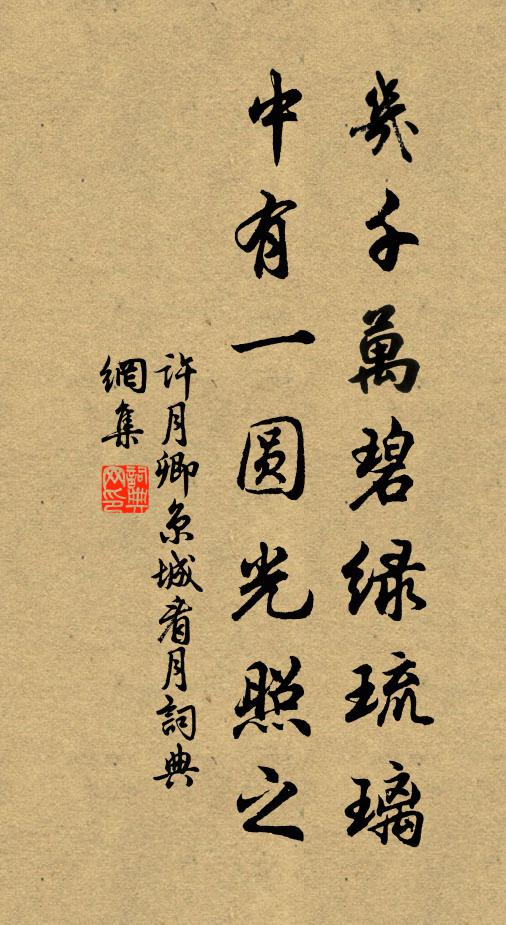 幾千萬碧綠琉璃
中有一圆光照之
許月卿京城看月詞典
網集
詞典
网印